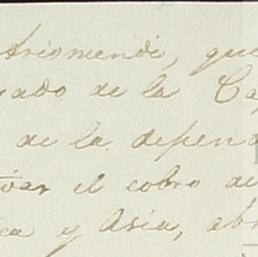 Arismendi, que
de la Ca
de la depend
el cobro de
y Asia, ab